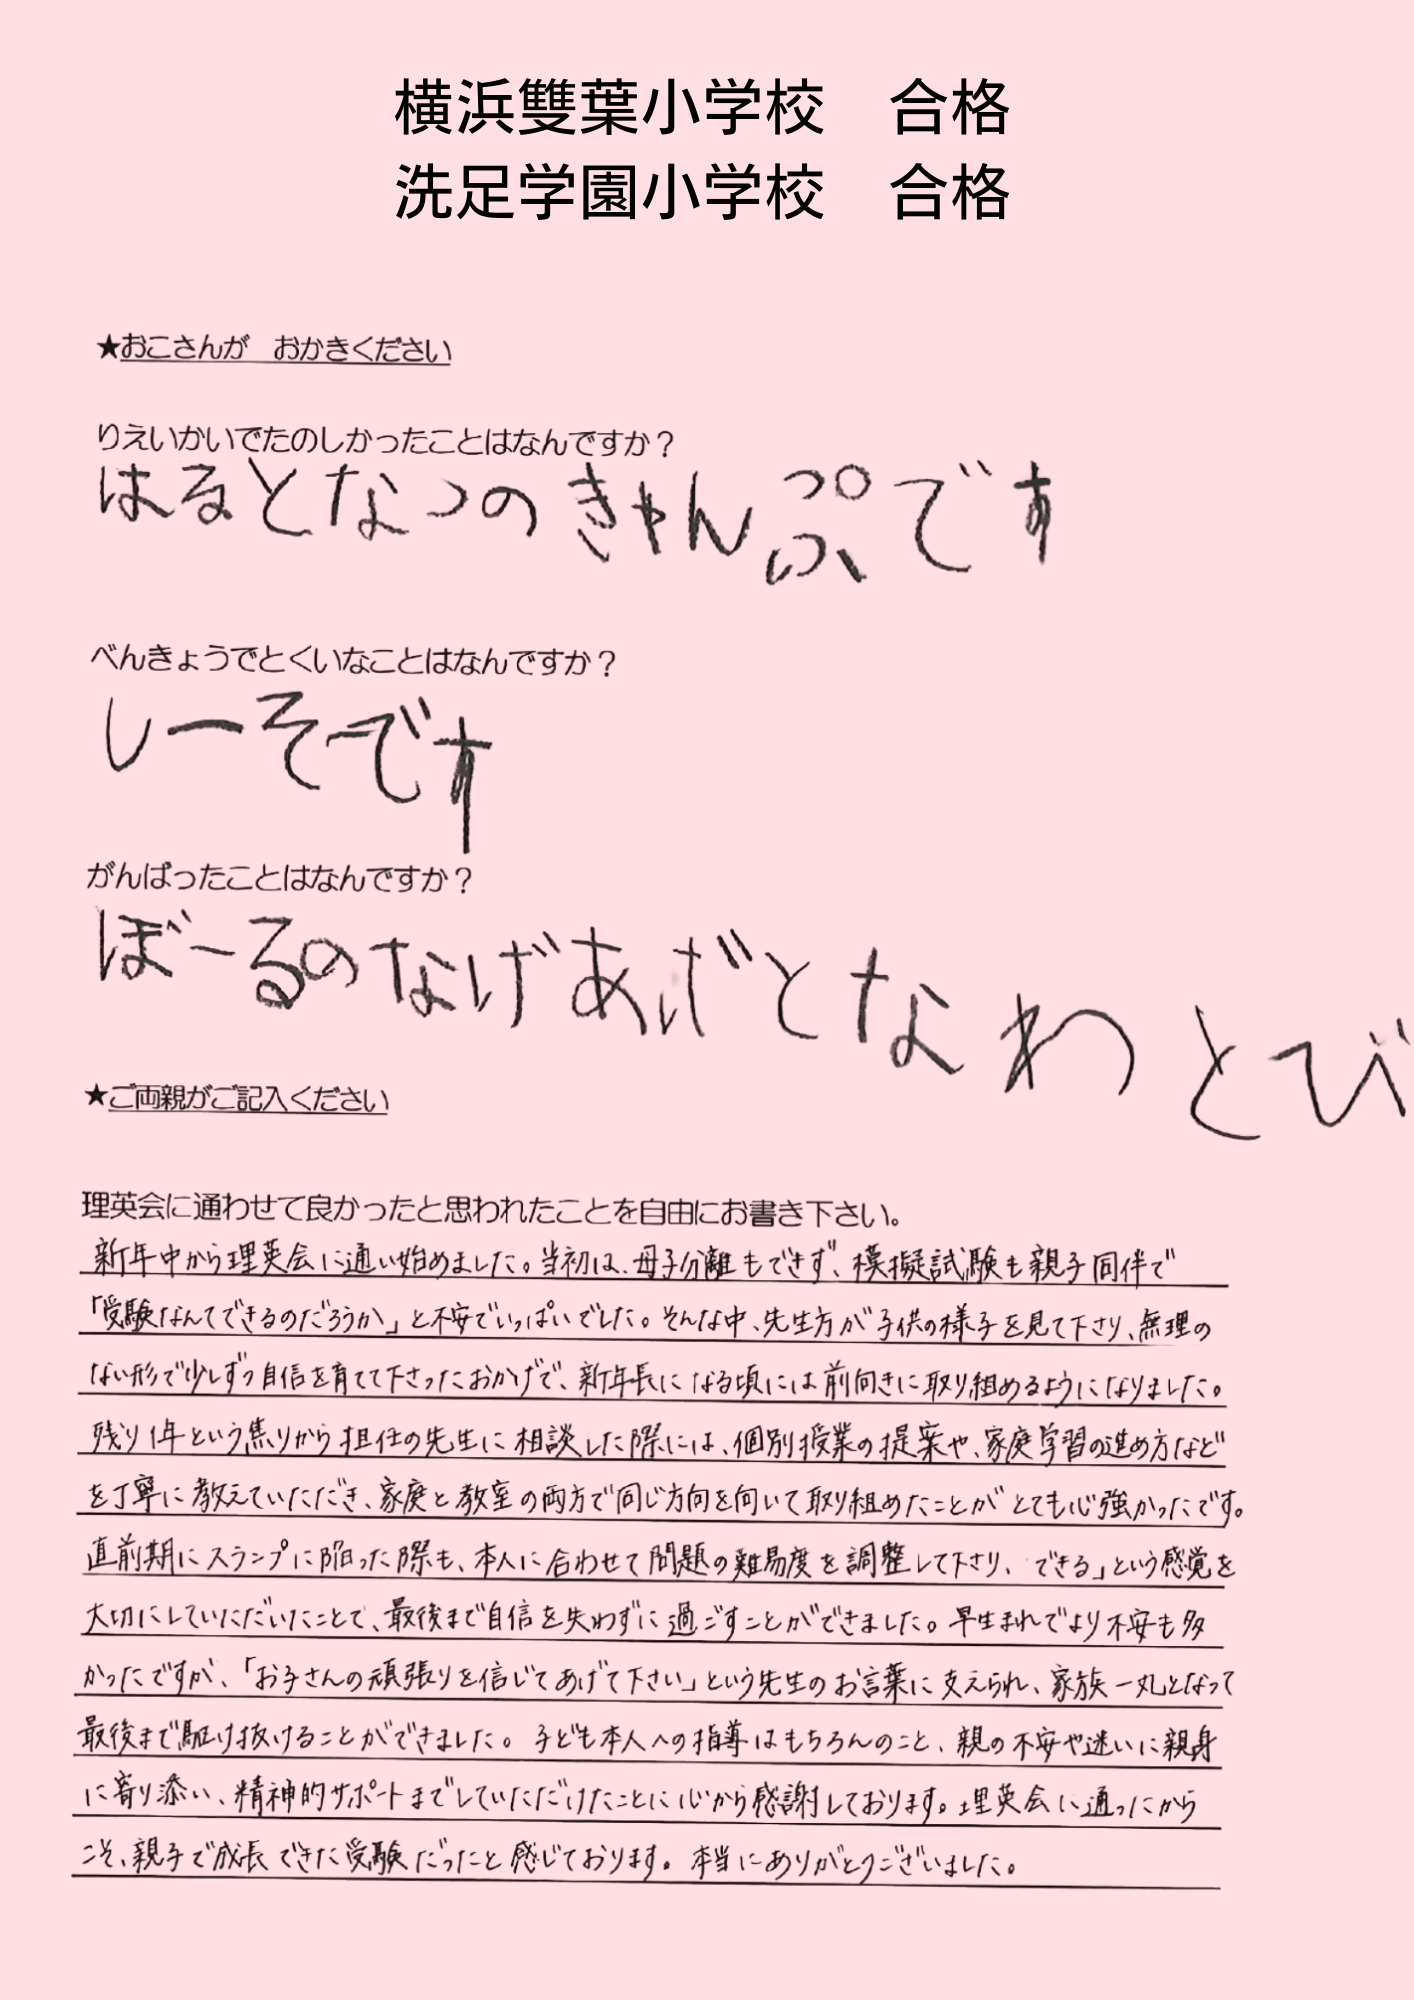 横浜雙葉小学校　合格
洗足学園小学校　合格
★おこさんが　おかきください
りえいかいでたのしかったことはなんですか？
はるとなつのきゃんぷです
べんきょうでとくいなことはなんですか？
しーそーです
がんばったことはなんですか？
ぼーるのなげあげとなわとび
★ご両親がご記入ください
理英会に通わせて良かったと思われたことを自由にお書き下さい。
新年中から理英会に通い始めました。当初は、母子分離もできず、模擬試験も親子同伴で
「受験なんてできるのだろうか」と不安でいっぱいでした。そんな中、先生方が子供の様子を見て下さり、無理の
ない形で少しずつ自信を育てて下さったおかげで、新年長になる頃には前向きに取り組めるようになりました。
残り1年という焦りから担任の先生に相談した際には、個別授業の提案や、家庭学習の進め方など
を丁寧に教えていただき、家庭と教室の両方で同じ方向を向いて取り組めたことがとても心強かったです。
直前期にスランプに陥った際も、本人に合わせて問題の難易度を調整して下さり、できる」という感覚を
大切にしていただいたことで、最後まで自信を失わずに過ごすことができました。早生まれでより不安も多
かったですが、「お子さんの頑張りを信じてあげて下さい」という先生のお言葉に支えられ、家族一丸となって
最後まで駆け抜けることができました。子ども本人への指導はもちろんのこと、親の不安や迷いに親身
に寄り添い、精神的サポートまでしていただけたことに心から感謝しております。理英会に通ったから
こそ、親子で成長できた受験だったと感じております。本当にありがとうございました。